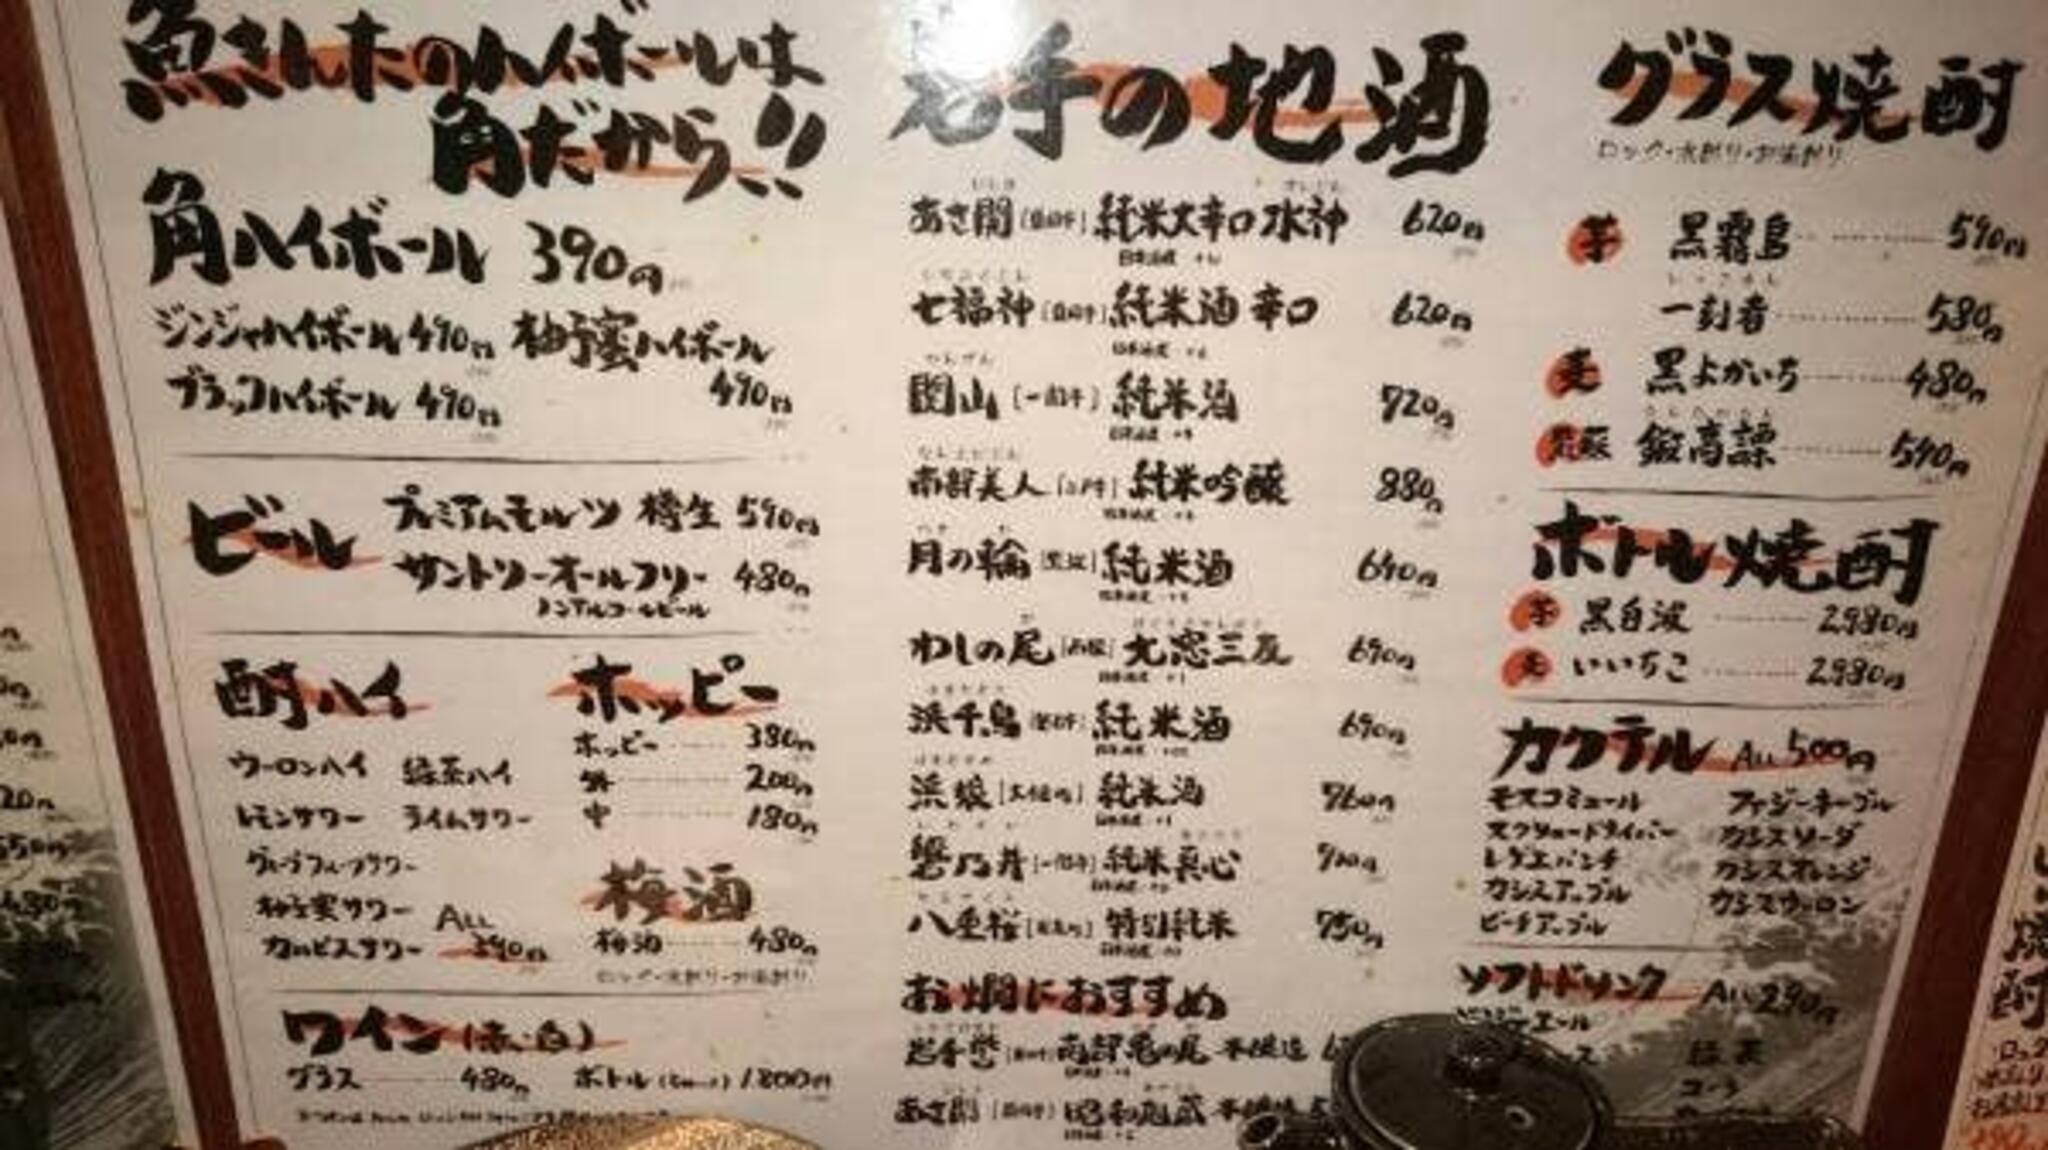 魚きんたのハイボールは
角だから!!
角ハイボール 390円
ジンジャハイボール 490円 柚子蜜ハイボール
ブラックハイボール 490円 490円
ビール プレミアムモルツ 樽生 590円
サントリーオールフリー 480円
ノンアルコールビール
酎ハイ
ウーロンハイ 緑茶ハイ
レモンサワー ライムサワー
グレープフルーツサワー
柚子蜜サワー ALL
カルピスサワー 390円
ホッピー
ホッピー 380円
外 200円
中 180円
梅酒
梅酒 480円
ロック・水割り・お湯割り
ワイン(赤・白)
グラス 480円 ボトル 1800円
岩手の地酒
あさ開 純米大辛口 水神 620円
七福神 純米酒 辛口 620円
関山 [一関市] 純米酒 720円
南部美人 [二戸市] 純米吟醸 880円
月の輪 純米酒 640円
わしの尾 690円
浜千鳥 純米酒 690円
浜娘 純米酒 760円
磐乃井 [一関市] 純米真心
八重桜 特別純米 750円
お燗におすすめ
岩手誉 南部亀の尾 本醸造
あさ開 昭和旭蔵 本醸造
グラス焼酎
ロック・水割り・お湯割り
芋 黒霧島 590円
一刻者 580円
麦 黒よかいち 480円
鍛高譚 590円
ボトル焼酎
芋 黒白波 2980円
麦 いいちこ 2980円
カクテル ALL 500円
モスコミュール ファジーネーブル
スクリュードライバー カシスソーダ
レゲエパンチ カシスオレンジ
カシスアップル カシスウーロン
ピーチアップル
ソフトドリンク ALL 290円
コーラ